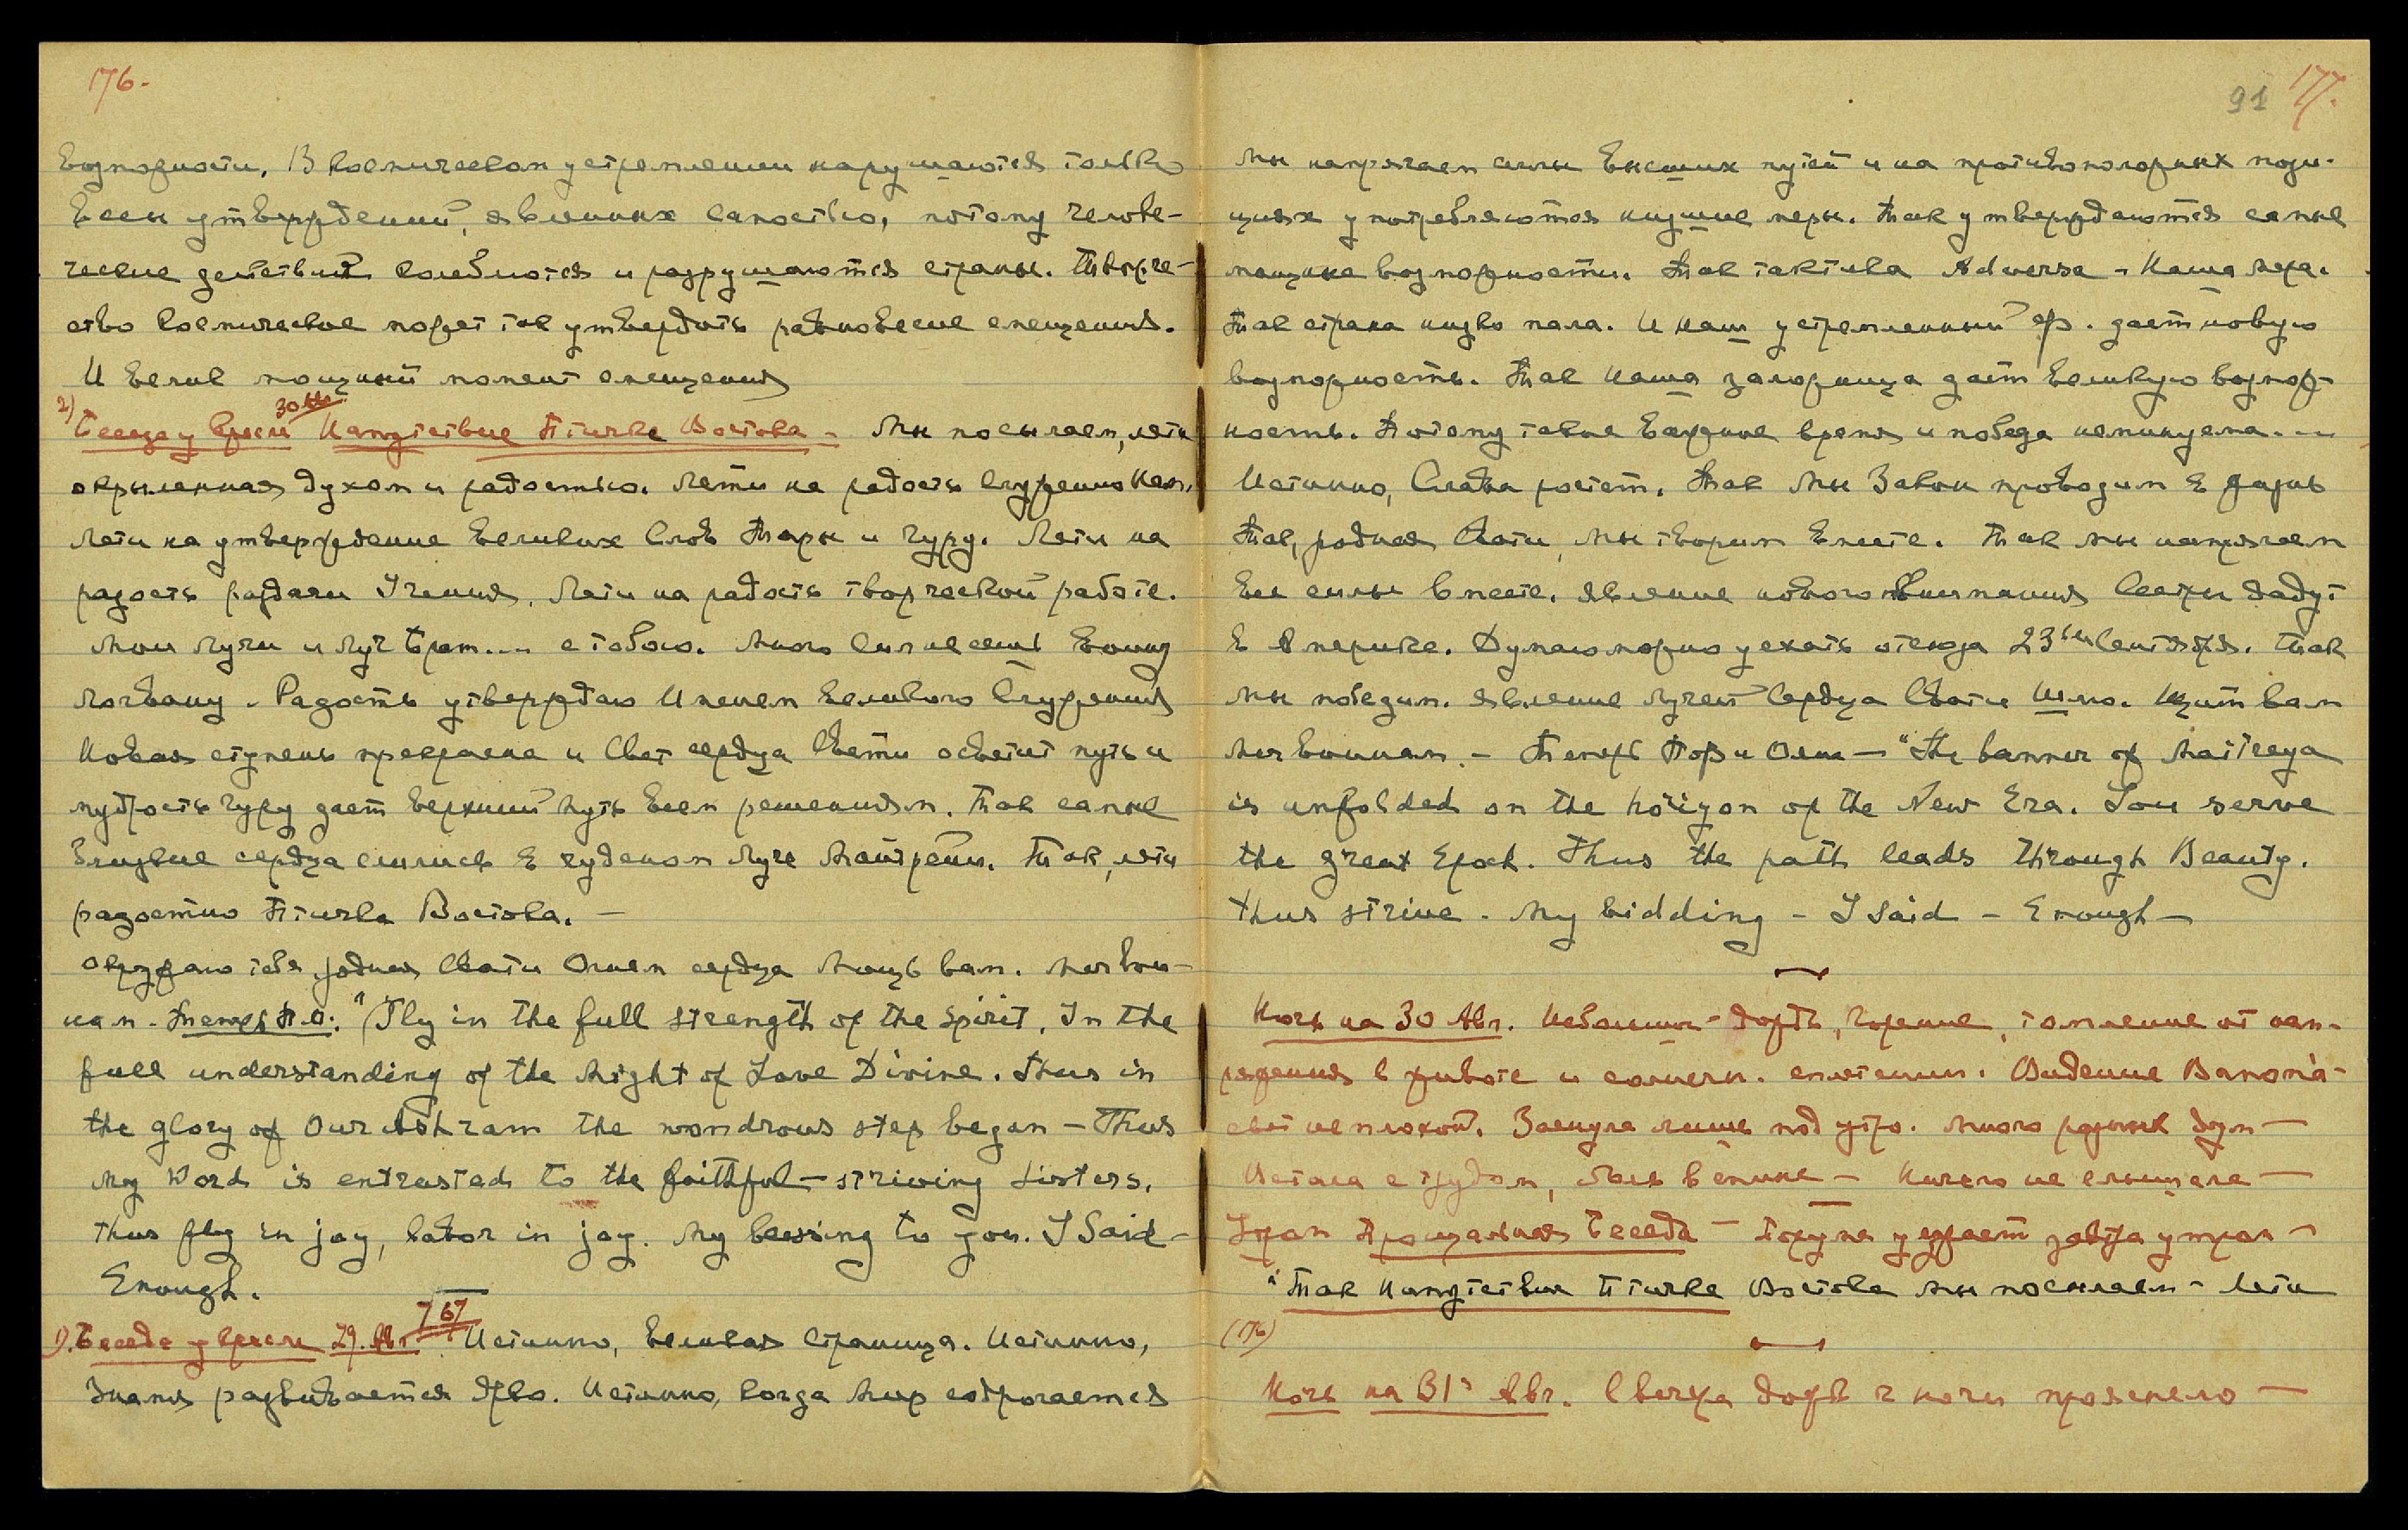 176.
возможности. В космическом устремлении нарушаются только
весы утверждений, явленных самостью, потому челове-
ческие действия колеблются и разрушаются страны. Творче-
ство космическое может так утвердить равновесие смещения.
И велик мощный момент смещения
2) Беседа у кресл 30 Ав. Напутствие Птичке Востока – Мы посылаем, лети
окрыленная духом и радостью. Лети на радость служения Нам.
Лети на утверждение великих Слов Тары и Гуру. Лети на
радость раздачи Учения. Лети на радость творческой работе.
Мои Лучи и Луч Брат... с тобою. Много Сил несешь
Логвану. Радость утверждаю Именем Великого Служения
Новая ступень прекрасна и Свет сердца Свати осветит путь и
мудрость Гуру дает верхний путь всем решениям. Так самые
близкие сердца слились в чудесном Луче Майтрейи. Так, лети
радостно Птичка Востока. –
Окружаю тебя родная Свати Огнем сердца Мощь вам. Меч вои-
нам. Теперь П.О: "Fly in the full strength of the Spirit, In the
full understanding of the Might of Love Divine. Thus in
the glory of Our Ashram the wondrous step began – Thus
My Word is entrusted to the faithful – striving sisters.
Thus fly in joy, labor in joy. My blessing to you. I Said –
Enough.
1). Беседа у кресл 29. Ав. 767 Истинно, великая страница. Истинно,
Знамя развивается Мое. Истинно, когда мир содрогается
91 177.
Мы напрягаем силы высших путей и на противоположных пози-
циях употребляются низшие меры. Так утверждаются самые
мощные возможности. Так тактика Adversa – Наша мера.
Так страна низко пала. И наш устремленный фр. дает новую
возможность. Так наша заложница дает великую возмож-
ность. Потому такое важное время и победа неминуема...
Истинно, Слава растет. Так Мы Закон проводим в жизнь
Так, родная Свати, Мы творим вместе. Так мы напрягаем
все силы вместе. Явление нового внимания Сестры дадут
в Америке. Думаю можно уехать отсюда 23го Сентября. Так
мы победим. Явление лучей Сердца Свати Шлю. Щит вам
Меч воинам. – Теперь Пор и Оям – "The banner of Maitreya
is unfolded on the horizon of the New Era. You serve
the great Epoch. Thus the path leads through Beauty.
Thus strive – My bidding – I Said – Enough –
Ночь на 30 Авг. Небольшой дождь, горение, томление от нап-
ряжения в животе и солнечн. сплетении. Видение
свет неплохой. Заснула лишь под утро. Много разных дум –
Встала с трудом, боль в спине – Ничего не слышала –
Утром Прощальная Беседа – Порума уезжает завтра утром –
"Так Напутствие Птичке Востока мы посылаем – Лети
(176)
Ночь на 31е Авг. С вечера дождь к ночи прояснело –